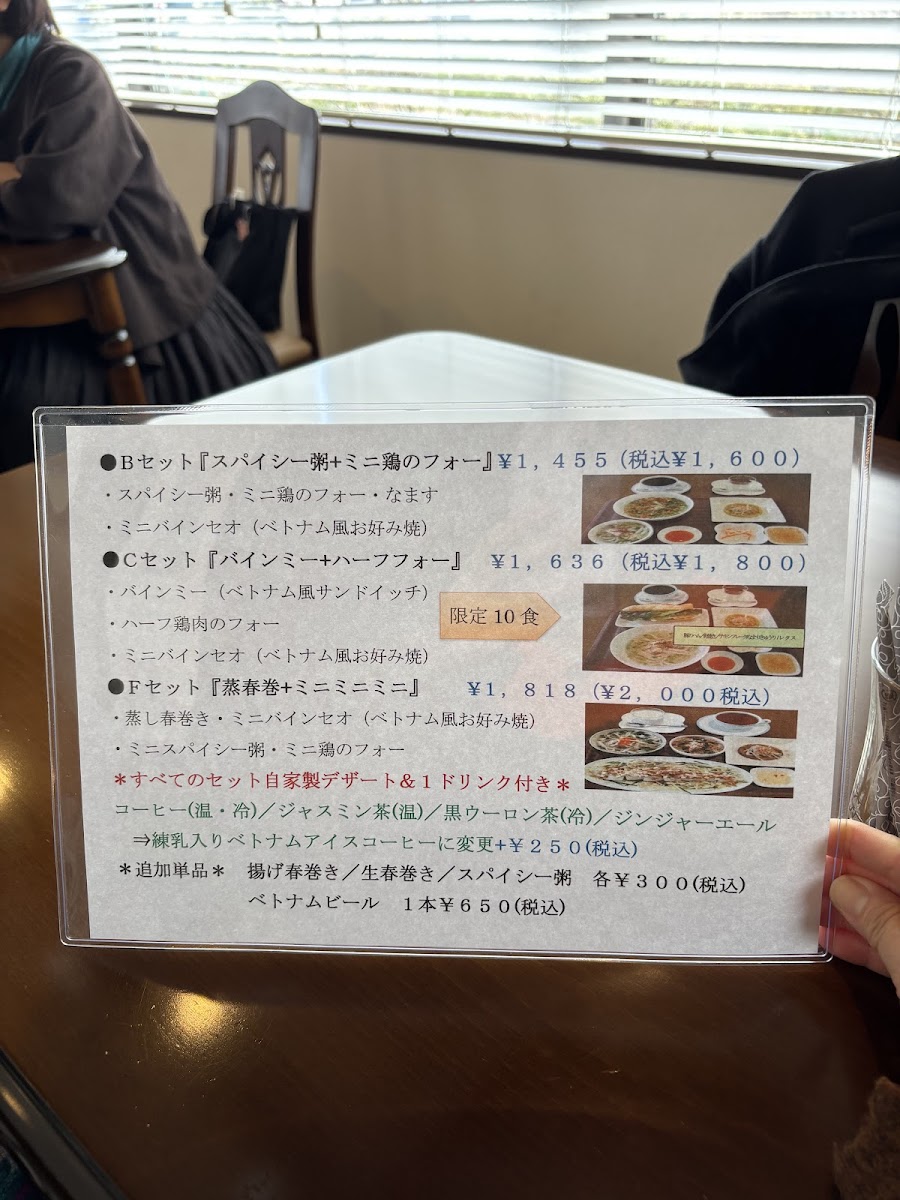 ●Bセット『スパイシー粥+ミニ鶏のフォー』¥1,455(税込¥1,600)
・スパイシー粥・ミニ鶏のフォー・なます
・ミニバインセオ（ベトナム風お好み焼）
●Cセット『バインミー+ハーフフォー』 ¥1,636(税込¥1,800)
・バインミー（ベトナム風サンドイッチ）
・ハーフ鶏肉のフォー
限定10食
・ミニバインセオ（ベトナム風お好み焼）
●Fセット『蒸春巻+ミニミニミニ』 ¥1,818(¥2,000税込)
・蒸し春巻き・ミニバインセオ（ベトナム風お好み焼）
・ミニスパイシー粥・ミニ鶏のフォー
＊すべてのセット自家製デザート＆１ドリンク付き＊
コーヒー(温・冷)／ジャスミン茶(温)／黒ウーロン茶(冷)／ジンジャーエール
⇒練乳入りベトナムアイスコーヒーに変更+¥２５０(税込)
＊追加単品＊ 揚げ春巻き／生春巻き／スパイシー粥 各¥３００(税込)
ベトナムビール １本¥６５０(税込)